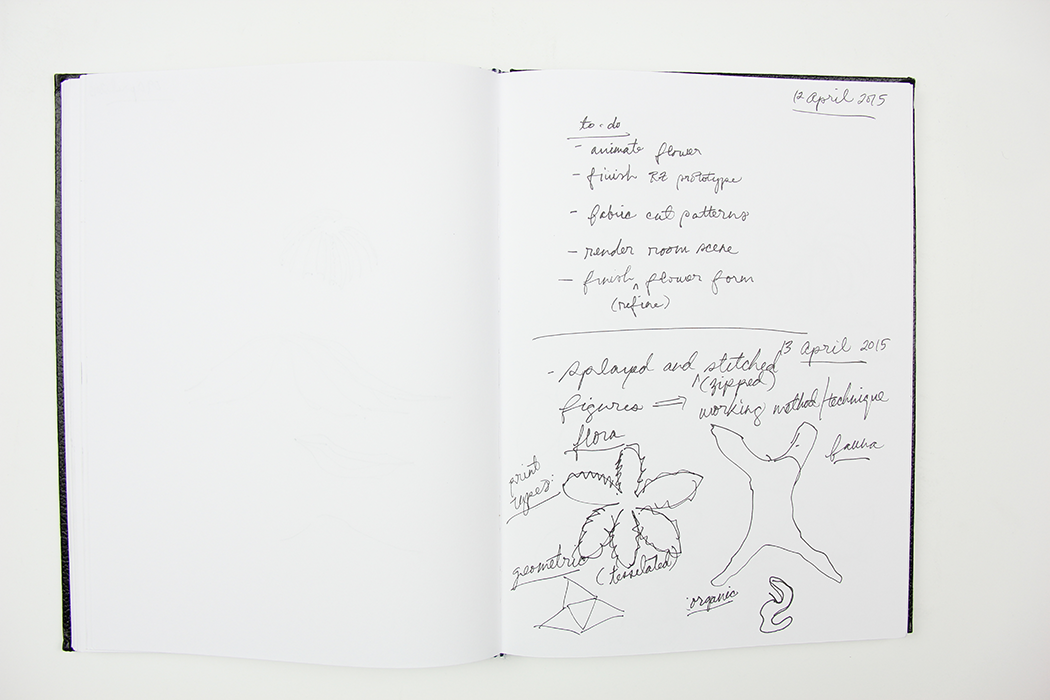 12 April 2015
to-do
- animate flower
- finish RZ prototype
- fabric cut patterns
- render room scene
- finish ^ flower form
(refine)
13 April 2015
- splayed and stitched
^ (zipped)
figures ⇒ working method/technique
flora
fauna
print
types:
geometric
(tesselated)
organic